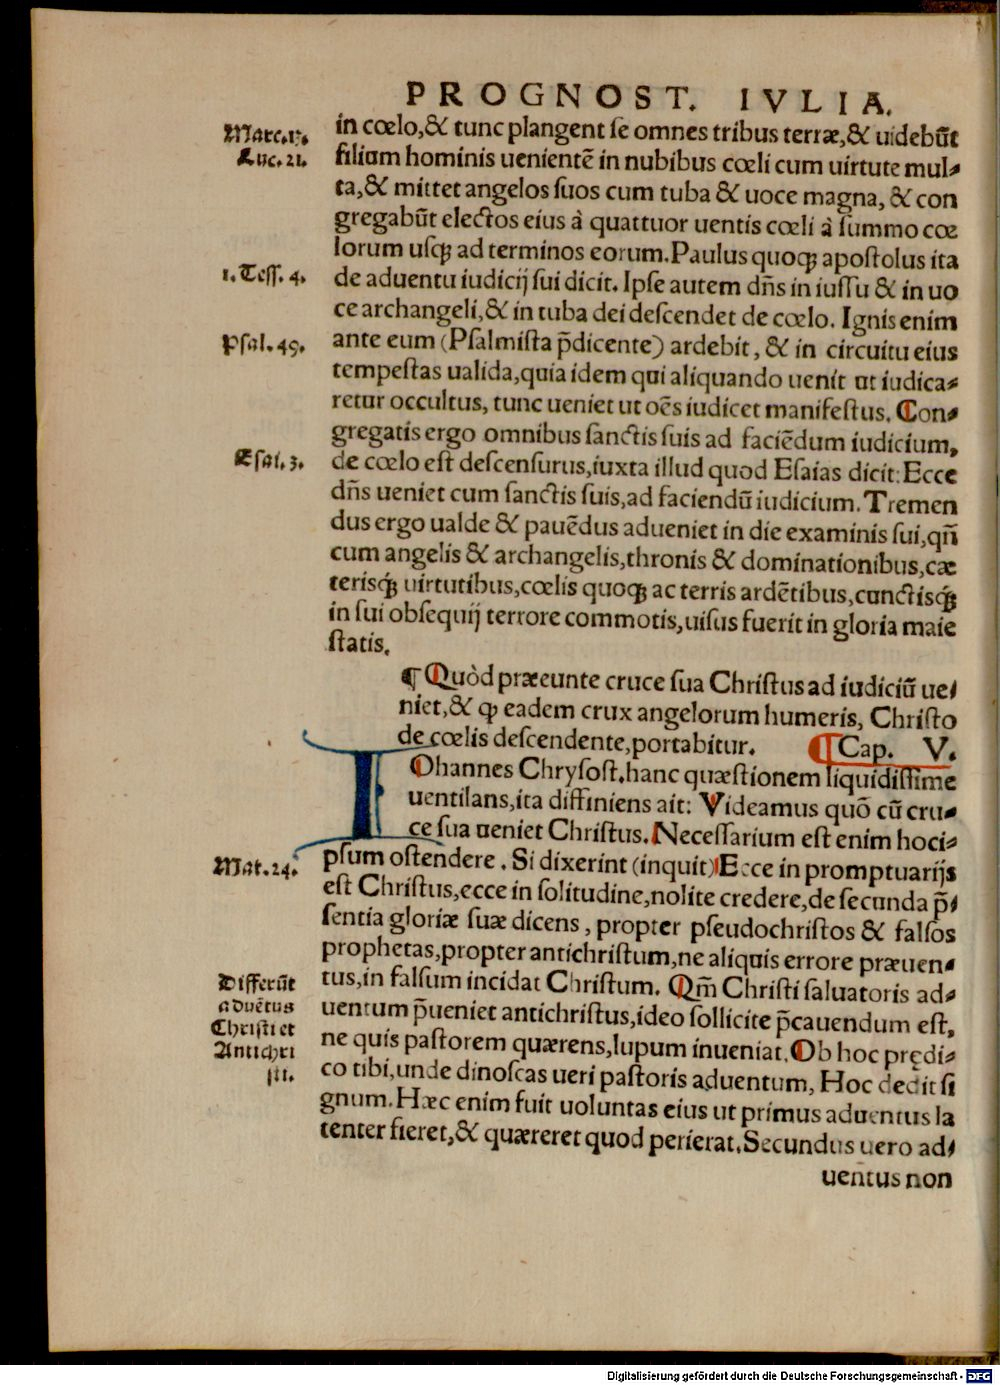 PROGNOST. IVLIA.
Marc.13.
Luc. 21.
in cœlo,& tunc plangent se omnes tribus terræ,& uidebūt
filium hominis uenientē in nubibus cœli cum uirtute mul-
ta,& mittet angelos suos cum tuba & uoce magna, & con
gregabūt electos eius à quattuor uentis cœli à summo cœ
lorum usq; ad terminos eorum. Paulus quoq; apostolus ita
1. Tess. 4.
de aduentu iudicij sui dicit. Ipse autem dñs in iussu & in uo
ce archangeli,& in tuba dei descendet de cœlo. Ignis enim
Psal. 49.
ante eum (Psalmista p̄dicente) ardebit, & in circuitu eius
tempestas ualida,quia idem qui aliquando uenit ut iudica-
retur occultus, tunc ueniet ut oēs iudicet manifestus. Con-
gregatis ergo omnibus sanctis suis ad faciēdum iudicium,
Esai. 3.
de cœlo est descensurus,iuxta illud quod Esaias dicit: Ecce
dñs ueniet cum sanctis suis,ad faciendū iudicium. Tremen
dus ergo ualde & pauēdus adueniet in die examinis sui,qñ
cum angelis & archangelis,thronis & dominationibus,cæ
terisq́; uirtutibus,cœlis quoq; ac terris ardētibus,cunctisq́;
in sui obsequij terrore commotis,uisus fuerit in gloria maie
statis.
¶ Quòd præeunte cruce sua Christus ad iudiciū ue-
niet,& ꝙ eadem crux angelorum humeris, Christo
de cœlis descendente,portabitur. ¶ Cap. V.
IOhannes Chrysost.hanc quæstionem liquidissime
uentilans,ita diffiniens ait: Videamus quō cū cru-
ce sua ueniet Christus. Necessarium est enim hoc i-
Mat. 24.
psum ostendere. Si dixerint (inquit) Ecce in promptuarijs
est Christus,ecce in solitudine,nolite credere,de secunda p̄-
sentia gloriæ suæ dicens, propter pseudochristos & falsos
prophetas,propter antichristum,ne aliquis errore præuen-
Differūt
aduētus
Christi et
Antichri
sti.
tus,in falsum incidat Christum. Qm̄ Christi saluatoris ad-
uentum p̄ueniet antichristus,ideo sollicite p̄cauendum est,
ne quis pastorem quærens,lupum inueniat. Ob hoc prędi-
co tibi,unde dinoscas ueri pastoris aduentum, Hoc dedit si
gnum. Hæc enim fuit uoluntas eius ut primus aduentus la
tenter fieret,& quæreret quod perierat. Secundus uero ad-
uentus non
Digitalisierung gefördert durch die Deutsche Forschungsgemeinschaft - DFG